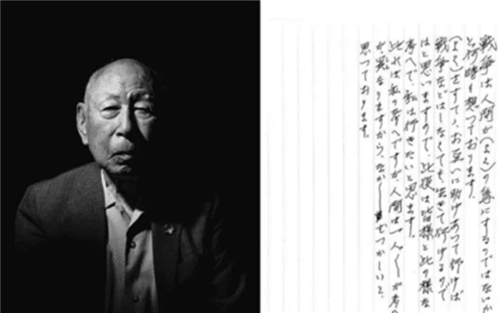 戦争は人間が(よく)の為にするのではないか
と何時も想っております。
(よく)をすてゝ、お互いに助けあって行けば
戦争などはしなくても、生きて行けるので
はと思いますので、此後は皆様と此の様な
考へで、私は行きたいと思います。
此れは私の考へですが、人間は一人一人が考へ
が異なますから、なかなかむつかしいと、
思っております。